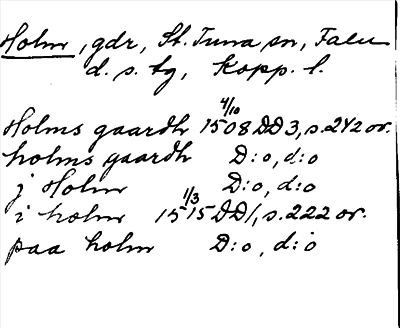 Holm, gdr, St. Tuna sn, Falu
d. s. tg, Kopp. l.
Holms gaardh 4/10 1508 DD3, s. 242 or.
holms gaardh D:o, d:o
j Holm D:o, d:o
i holm 1/3 1515 DD1, s. 222 or.
paa holm D:o, d:o